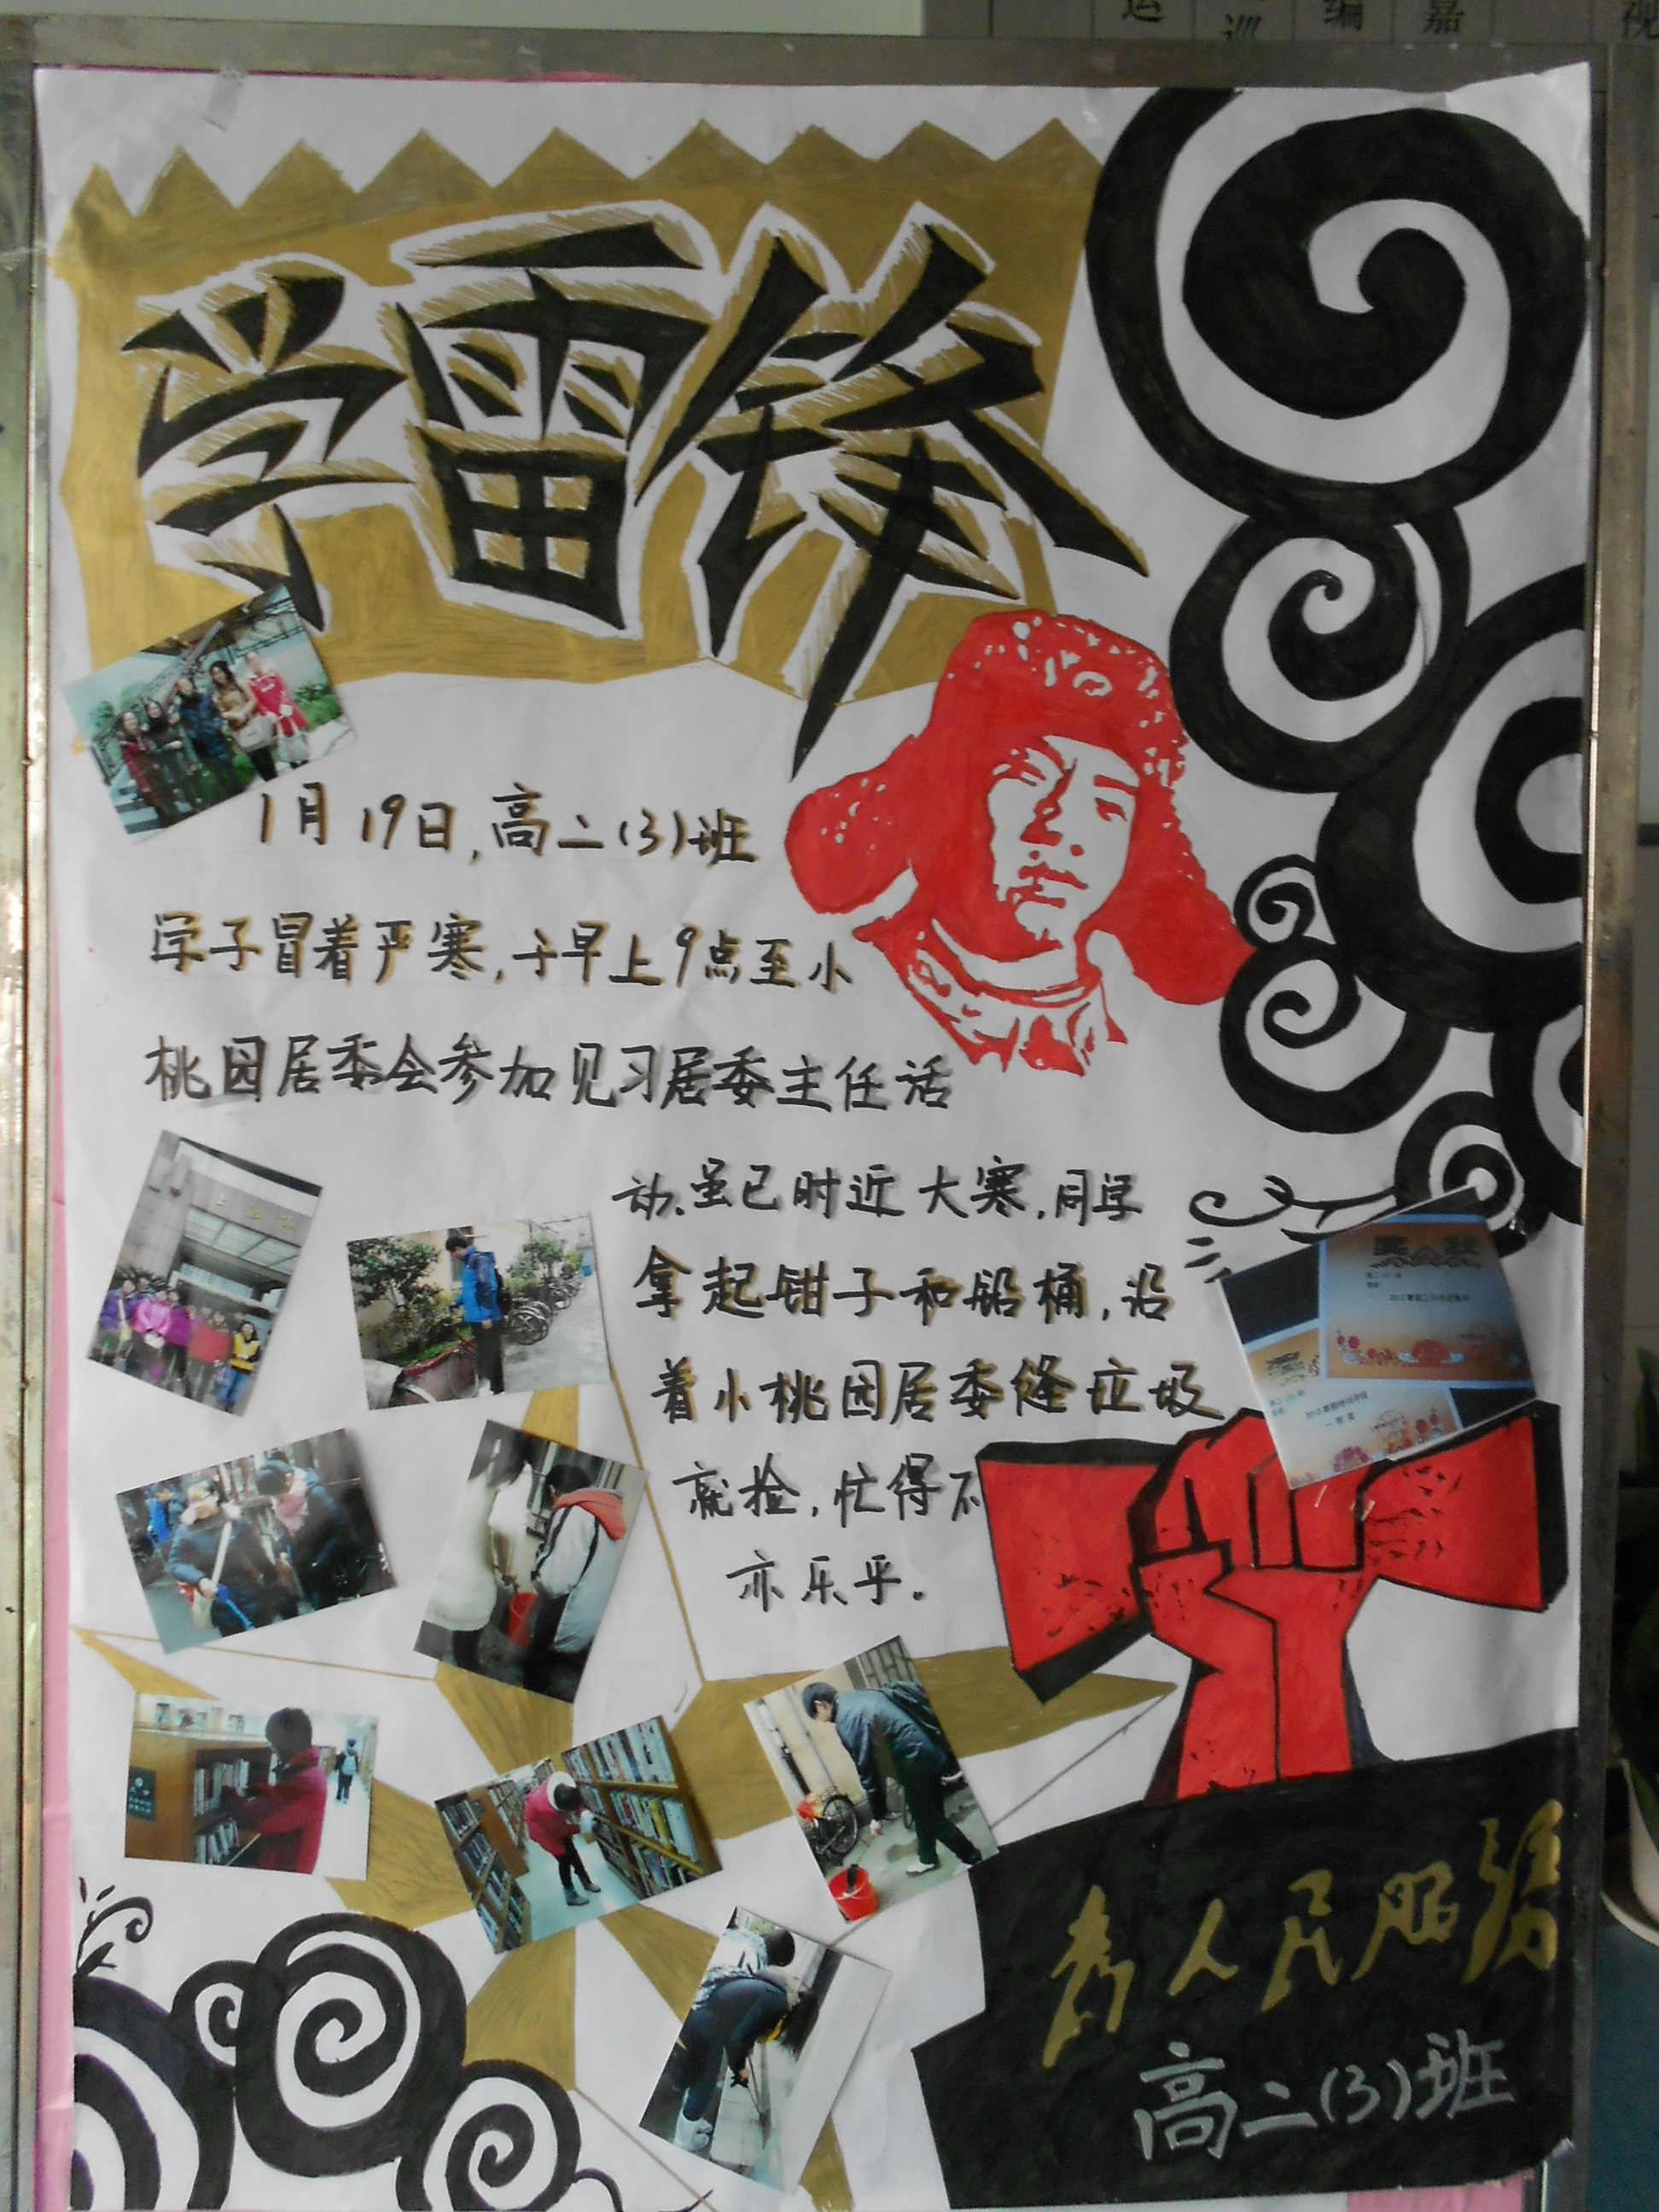 运 巡 编 嘉 视
学雷锋
1月19日,高二(3)班
学子冒着严寒,于早上9点至小
桃园居委会参加见习居委主任活
动.虽已时近大寒,同学
拿起钳子和铅桶,沿
着小桃园居委缝垃圾
就捡,忙得不
亦乐乎.
奖状
为人民服务
高二(3)班